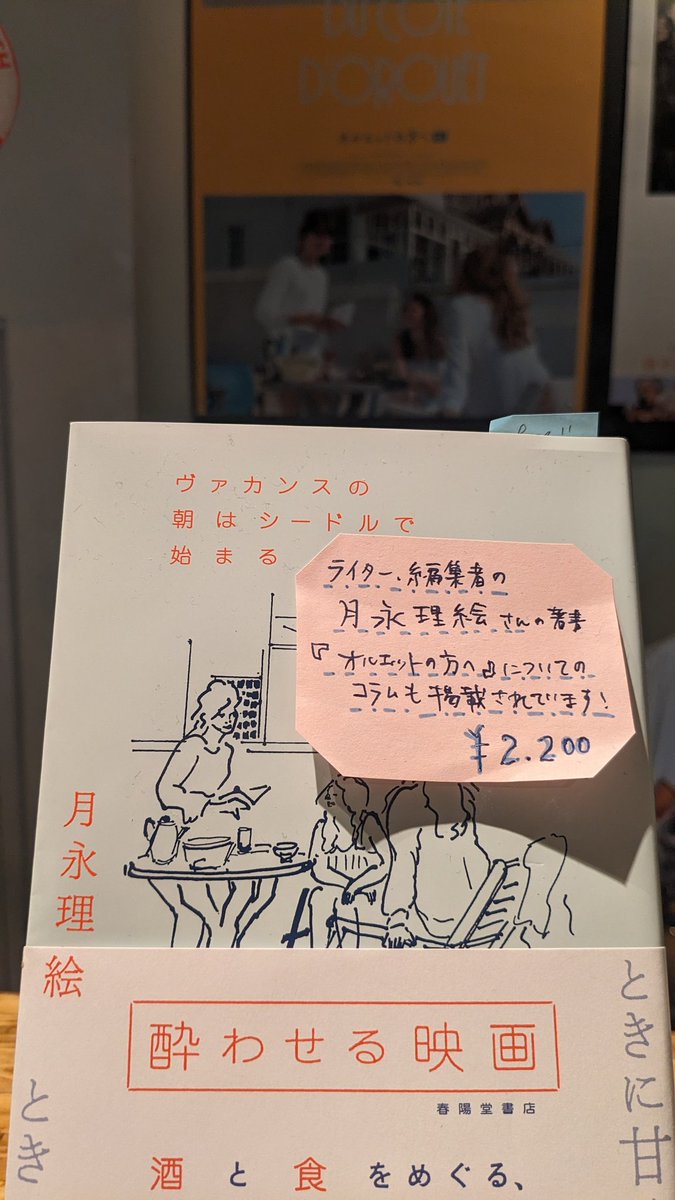 DU CÔTÉ
D'OROUËT
ヴァカンスの
朝はシードルで
始まる
ライター、編集者の
月永理絵さんの著書
『オルエットの方へ』についての
コラムも掲載されています!
¥2.200
月永理絵
酔わせる映画
春陽堂書店
ときに甘
とき
酒と食をめぐる、